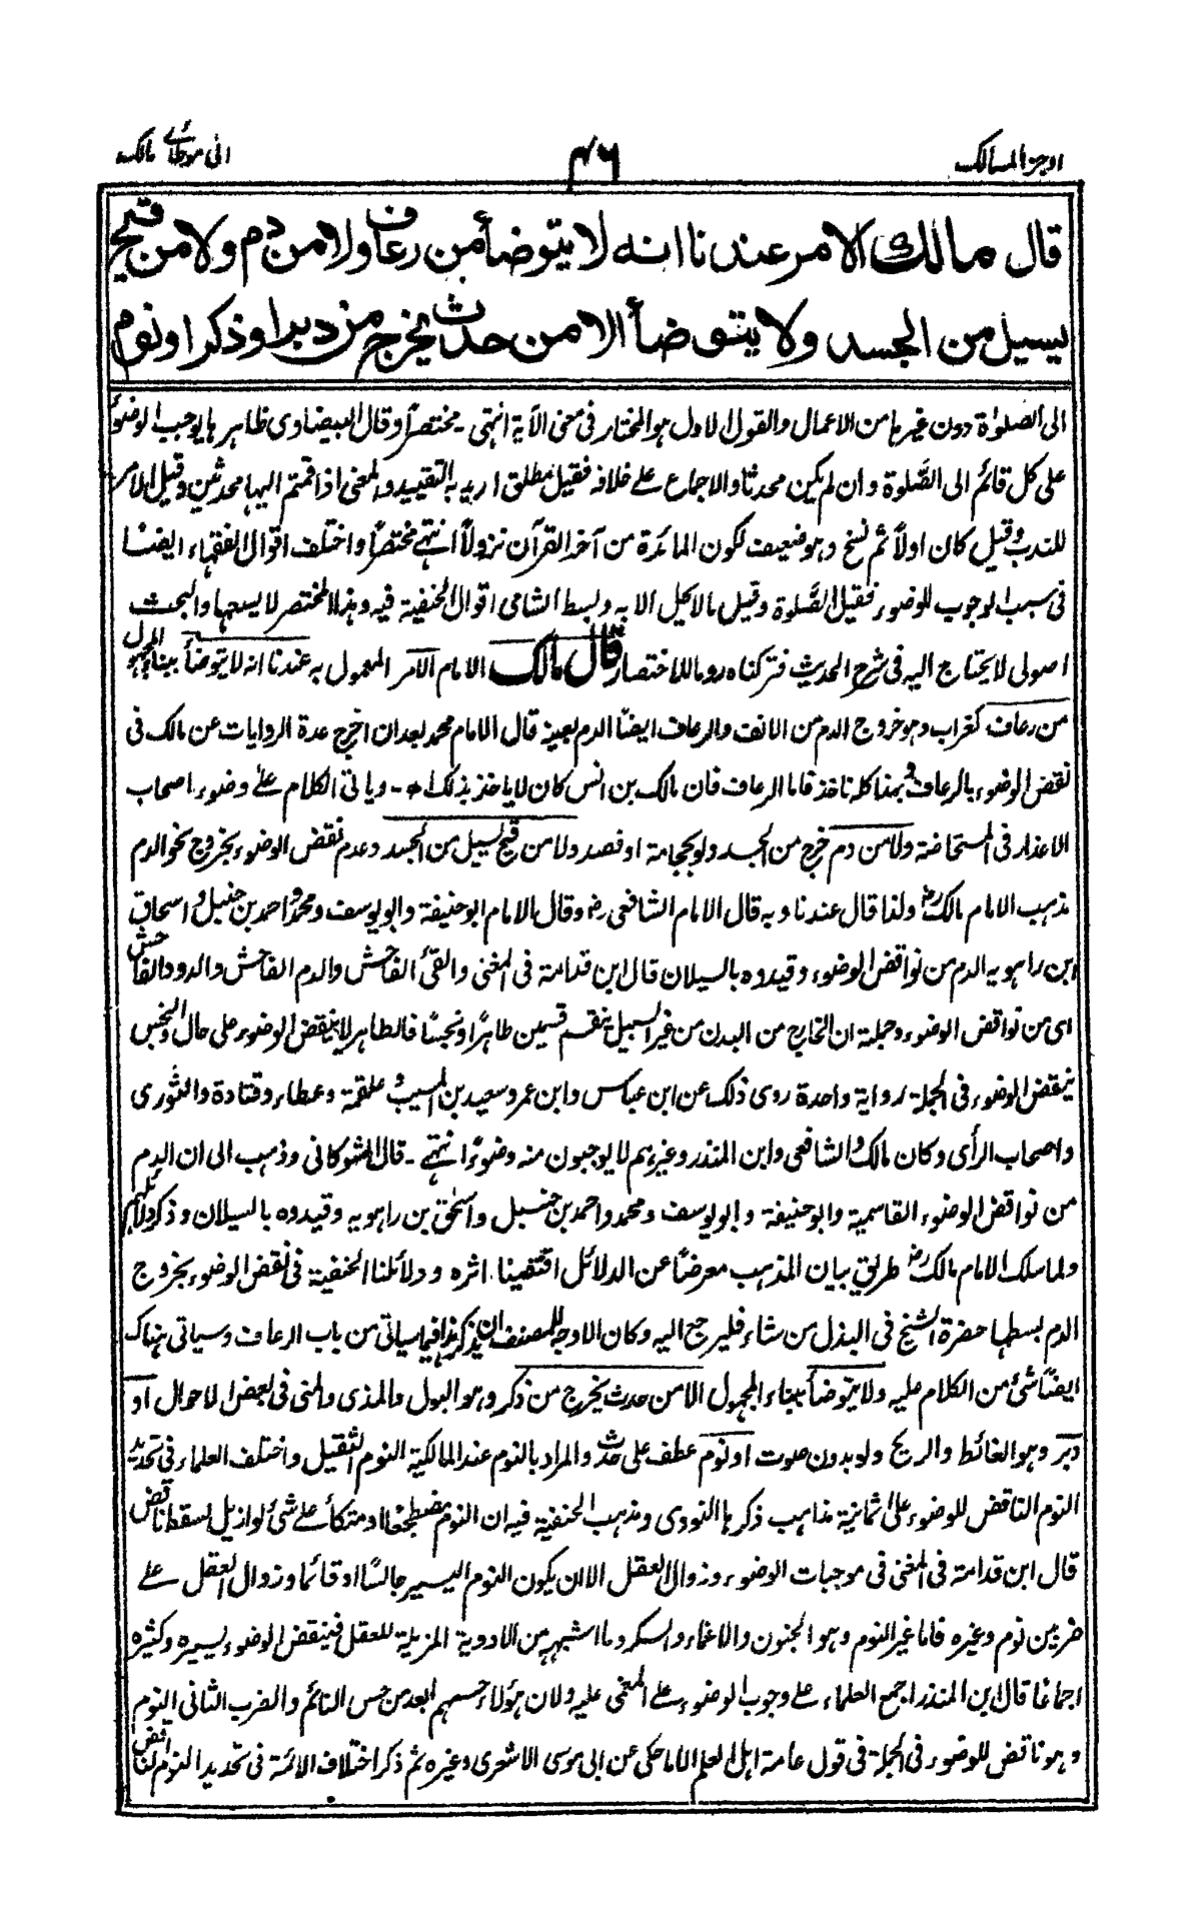 اوجز المسالك
٤٦
الى موطأے مالك
قال مالك الامر عندنا انه لا يتوضأ من رعاف ولا من دم ولا من قيح
يسيل من الجسد ولا يتوضأ الا من حدث يخرج من دبر او ذكر او نوم
الى الصلوٰة دون غيرها من الاعمال والقول الاول هو المختار فى معنى الآية انتهى ـ مختصراً وقال البيضاوى ظاهرها يوجب الوضوء
على كل قائم الى الصَّلوة وان لم يكن محدثا والاجماع علے خلافه فقيل مطلق اريد به التقييد والمعنى اذا قمتم اليها محدثين وقيل الامر
للندب وقيل كان اولاً ثم نسخ وهو ضعيف لكون المائدة من آخر القرآن نزولاً انتهے مختصراً واختلف اقوال الفقهاء ايضًا
فى سبب الوجوب للوضوء فقيل الصَّلوة وقيل مالا يحل الا به وبسط الشامى اقوال الحنفية فيه وهذا المختصر لا يسعها والبحث
اصولى لا يحتاج اليه فى شرح الحديث فتركناه روما للاختصار قال مالك الامام الامر المعمول به عندنا انه لا يتوضأ ببناء المجهول
من رعاف كغراب وهو خروج الدم من الانف والرعاف ايضًا الدم بعينه قال الامام محمد بعد ان اخرج عدة الروايات عن مالك فى
نقض الوضوء بالرعاف وبهذا كله ناخذ فاما الرعاف فان مالك بن انس كان لا ياخذ بذلك اھ ـ وياتى الكلام علے وضوء اصحاب
الاعذار فى المستحاضة ولا من دم خرج من الجسد ولو بحجامة او فصد ولا من قيح يسيل من الجسد وعدم نقض الوضوء بخروج نحو الدم
مذهب الامام مالك رض ولذا قال عندنا وبه قال الامام الشافعى رض وقال الامام ابو حنيفة وابو يوسف ومحمد واحمد بن حنبل و اسحاق
ابن راهويه الدم من نواقض الوضوء وقيدوه بالسيلان قال ابن قدامة فى المغنى والقئ الفاحش والدم الفاحش والدود الفاحش
اى من نواقض الوضوء وجملته ان الخارج من البدن من غير السبيل ينقسم قسمين طاهرًا ونجسًا فالطاهر لا ينقض الوضوء على حال والنجس
ينقض الوضوء فى الجملة رواية واحدة روى ذلك عن ابن عباس وابن عمر وسعيد بن المسيب و علقمة وعطاء وقتادة والثورى
واصحاب الرأى وكان مالك والشافعى وابن المنذر وغيرهم لا يوجبون منه وضوءًا انتهے ـ قال الشوكانى وذهب الى ان الدم
من نواقض الوضوء القاسمية وابو حنيفة وابو يوسف ومحمد واحمد بن حنبل واسحٰق بن راهويه وقيدوه بالسيلان وذكر دلائلهم
ولما سلك الامام مالك رض طريق بيان المذهب معرضًا عن الدلائل اقتفينا اثره ودلائلنا الحنفية فى نقض الوضوء بخروج
الدم بسطها حضرة الشيخ فى البذل من شاء فليرجع اليه وكان الاوجه للمصنف ان يذكر هذا فيما سياتى من باب الرعاف وسياتى هناك
ايضًا شئ من الكلام عليه ولا يتوضأ ببناء المجهول الا من حدث يخرج من ذكر وهو البول والمذى والمنى فى بعض الاحوال او
دبر وهو الغائط والريح ولو بدون صوت او نوم عطف على حدث والمراد بالنوم عند المالكية النوم الثقيل واختلف العلماء فى تحديد
النوم الناقض للوضوء علىٰ ثمانية مذاهب ذكرها النووى ومذهب الحنفية فيه ان النوم مضطجعًا او متكأ علے شئ لو ازيل لسقط ناقض
قال ابن قدامة فى المغنى فى موجبات الوضوء وزوال العقل الا ان يكون النوم اليسير جالسًا او قائما وزوال العقل علے
ضربين نوم وغيره فاما غير النوم وهو الجنون والاغماء والسكر وما اشبهه من الادوية المزيلة للعقل فينقض الوضوء يسيره وكثيره
اجماعا قال ابن المنذر اجمع العلماء علے وجوب الوضوء علے المغمى عليه ولان هؤلاء حسهم ابعد من حس النائم والضرب الثانى النوم
وهو ناقض للوضوء فى الجملة فى قول عامة اهل العلم الا ما حكى عن ابى موسى الاشعرى وغيره ثم ذكر اختلاف الائمة فى تحديد النوم الناقض